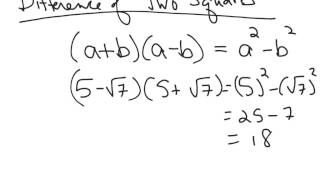 Difference of Two Squares
(a+b)(a-b) = a²-b²
(5-√7)(5+√7)=(5)²-(√7)²
= 25-7
= 18